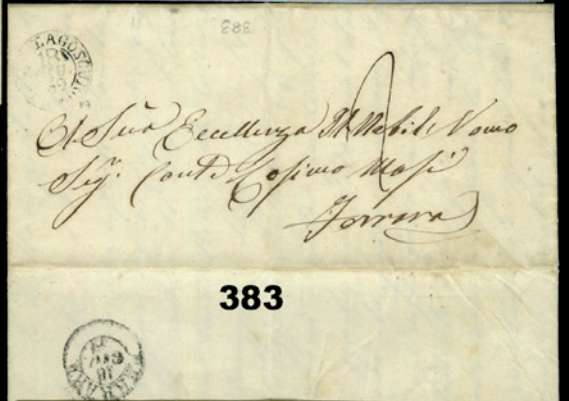 383
LAGOSCURO
18
A Sua Eccellenza Il Nobile Uomo
Sigr. Conte Cosimo Masi
Ferrara
383
FERRARA
18